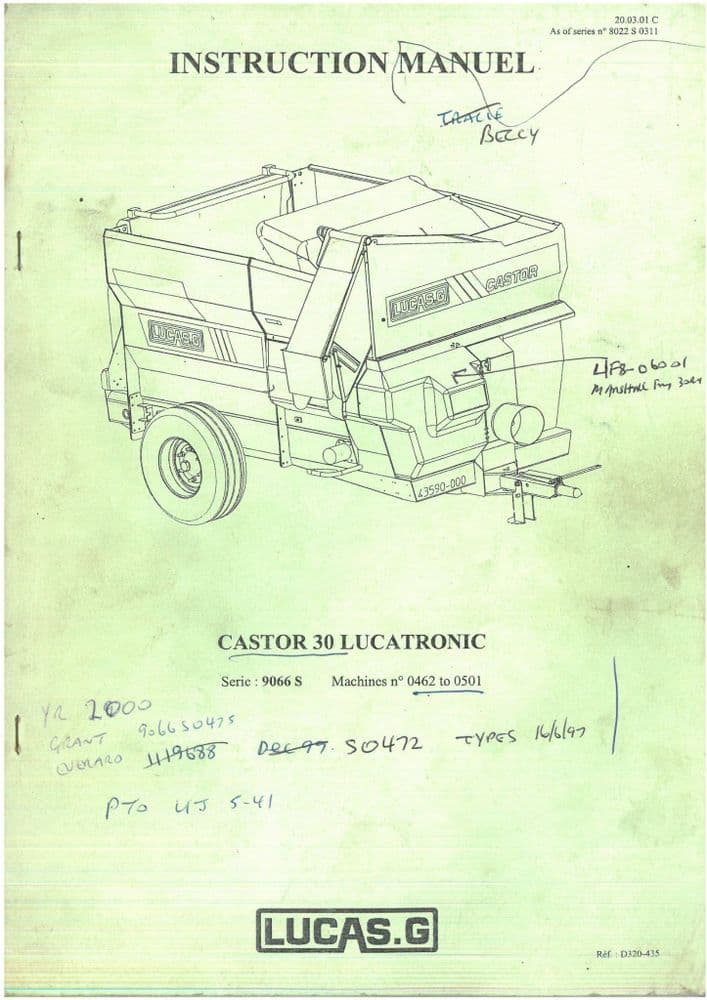 20.03.01 C
As of series n° 8022 S 0311
INSTRUCTION MANUEL
TRACIE
BECCY
LUCAS.G CASTOR
LUCAS.G
4F8-06001
43590-000
CASTOR 30 LUCATRONIC
Serie : 9066 S Machines n° 0462 to 0501
YR 2000
GRANT 9066S0475
EVERARD 119688 Dec 99. S0472 TYPES 16/6/97
PTO UJ 5-41
LUCAS.G
Réf. : D320-435